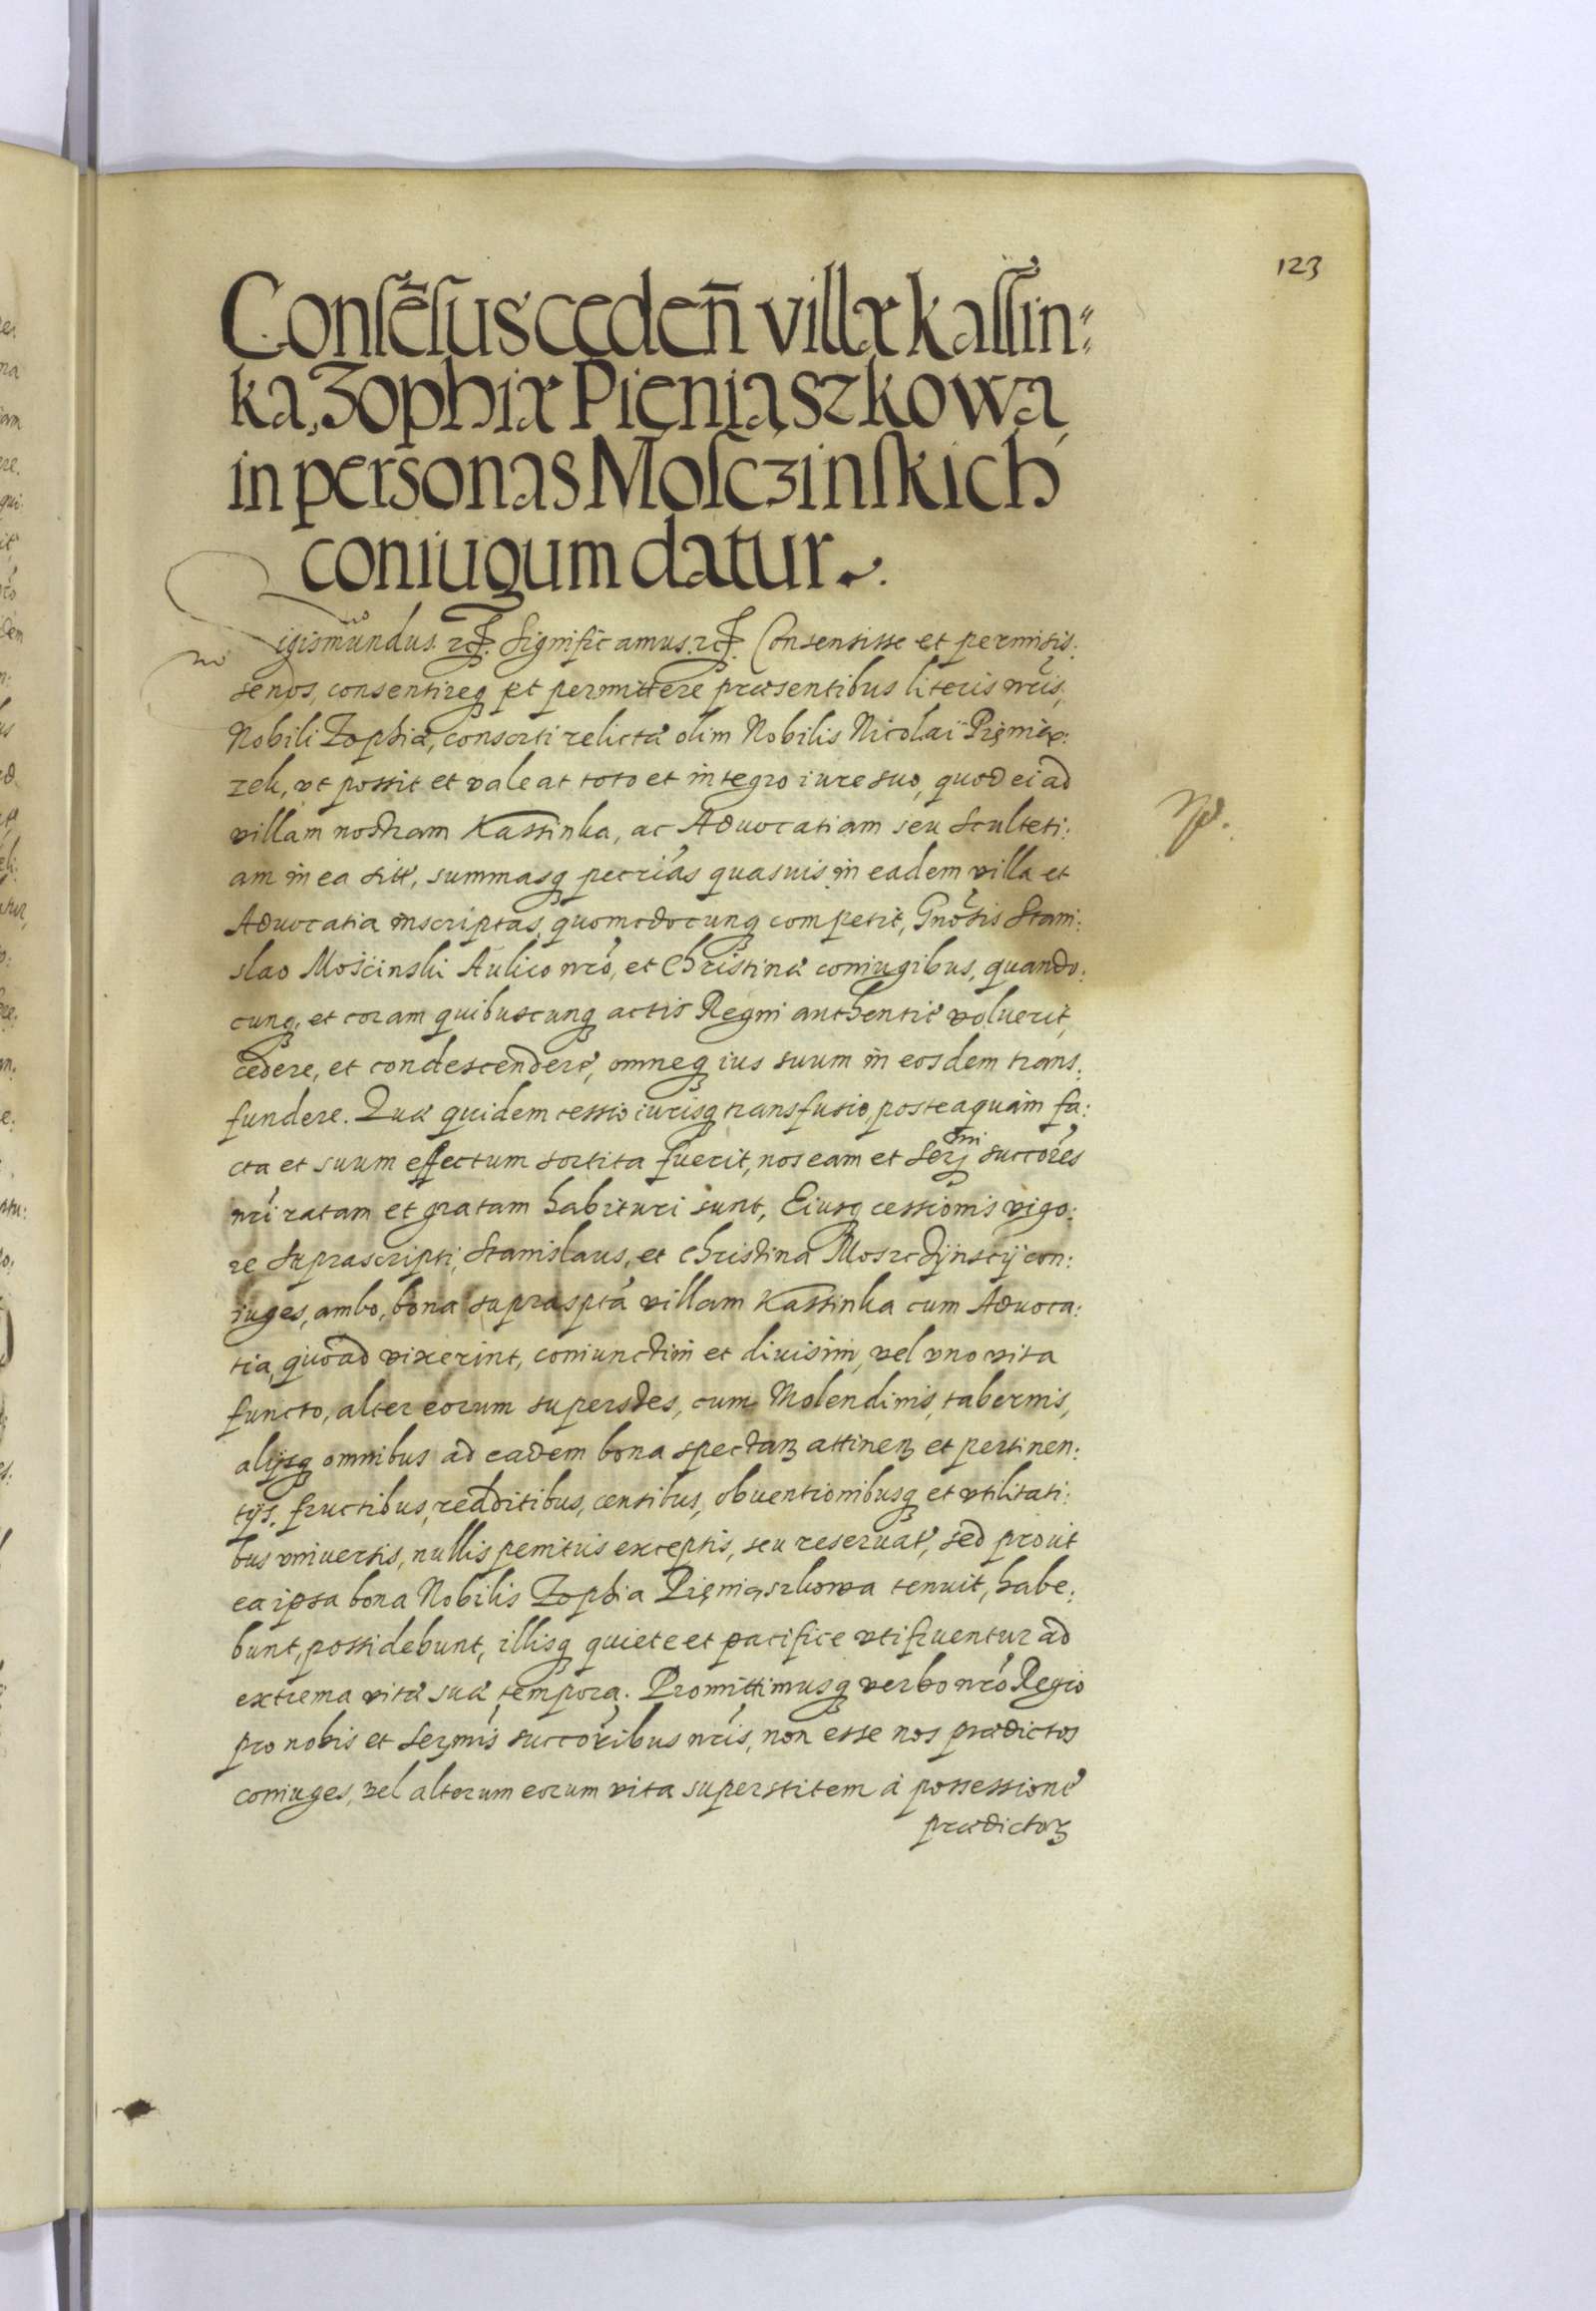 123
Consēsus ceden̄ villæ Kassin:
ka, Zophiæ Pieniąszkowa
in personas Mosczinskich
coniugum datur.
Sigismundus. etc. Significamus. etc. Consensisse et permisis:
se nos, consentireq et permittere præsentibus literis nr̄is,
Nobili Zophiæ, consorti relictæ olim Nobilis Nicolai Pienią:
zek, vt possit et valeat toto et integro iure suo, quod ei ad
villam nostram Kassinka, ac Aduocatiam seu Sculteti:
am in ea sitt, summasq pecrias quasuis in eadem villa et
Aduocatia inscriptas, quomodocunq competit, Gnosis Stani:
slao Mosćinski Aulico nr̄o, et Christinæ coniugibus, quando:
cunq, et coram quibuscunq actis Regni authentic̄ voluerit,
cedere, et condescendere, omneq ius suum in eosdem trans:
fundere. Quæ quidem cessio iurisq transfusio, posteaquam fa:
cta et suum effectum sortita fuerit, nos eam et Serj̄mi succores
nr̄i ratam et gratam habituri sunt, Eiusq cessionis vigo:
re suprascripti, Stanislaus, et Christina Moscżijnscij con:
iuges, ambo, bona supraspta villam Kassinka cum Aduoca:
tia, quoad vixerint, coniunctim et diuisim, vel vno vita
functo, alter eorum superstes, cum Molendinis, tabernis,
alijsq omnibus ad eadem bona spectanꝫ attinenꝫ et pertinen:
tijs. fructibus, redditibus, censibus, obuentionibusq et vtilitati:
bus vniuersis, nullis penitus exceptis, seu reseruat̄, sed prout
ea ipsa bona Nobilis Zophia Pieniąszkowa tenuit, habe:
bunt, possidebunt, illisq quiete et pacifice vtifruentur ad
extrema vitæ suæ tempora. Promittimusq verbo nr̄o Regio
pro nobis et Serj̄mis succoribus nr̄is, non esse nos prædictos
coniuges, vel alterum eorum vita superstitem à possessione
prædictoꝫ